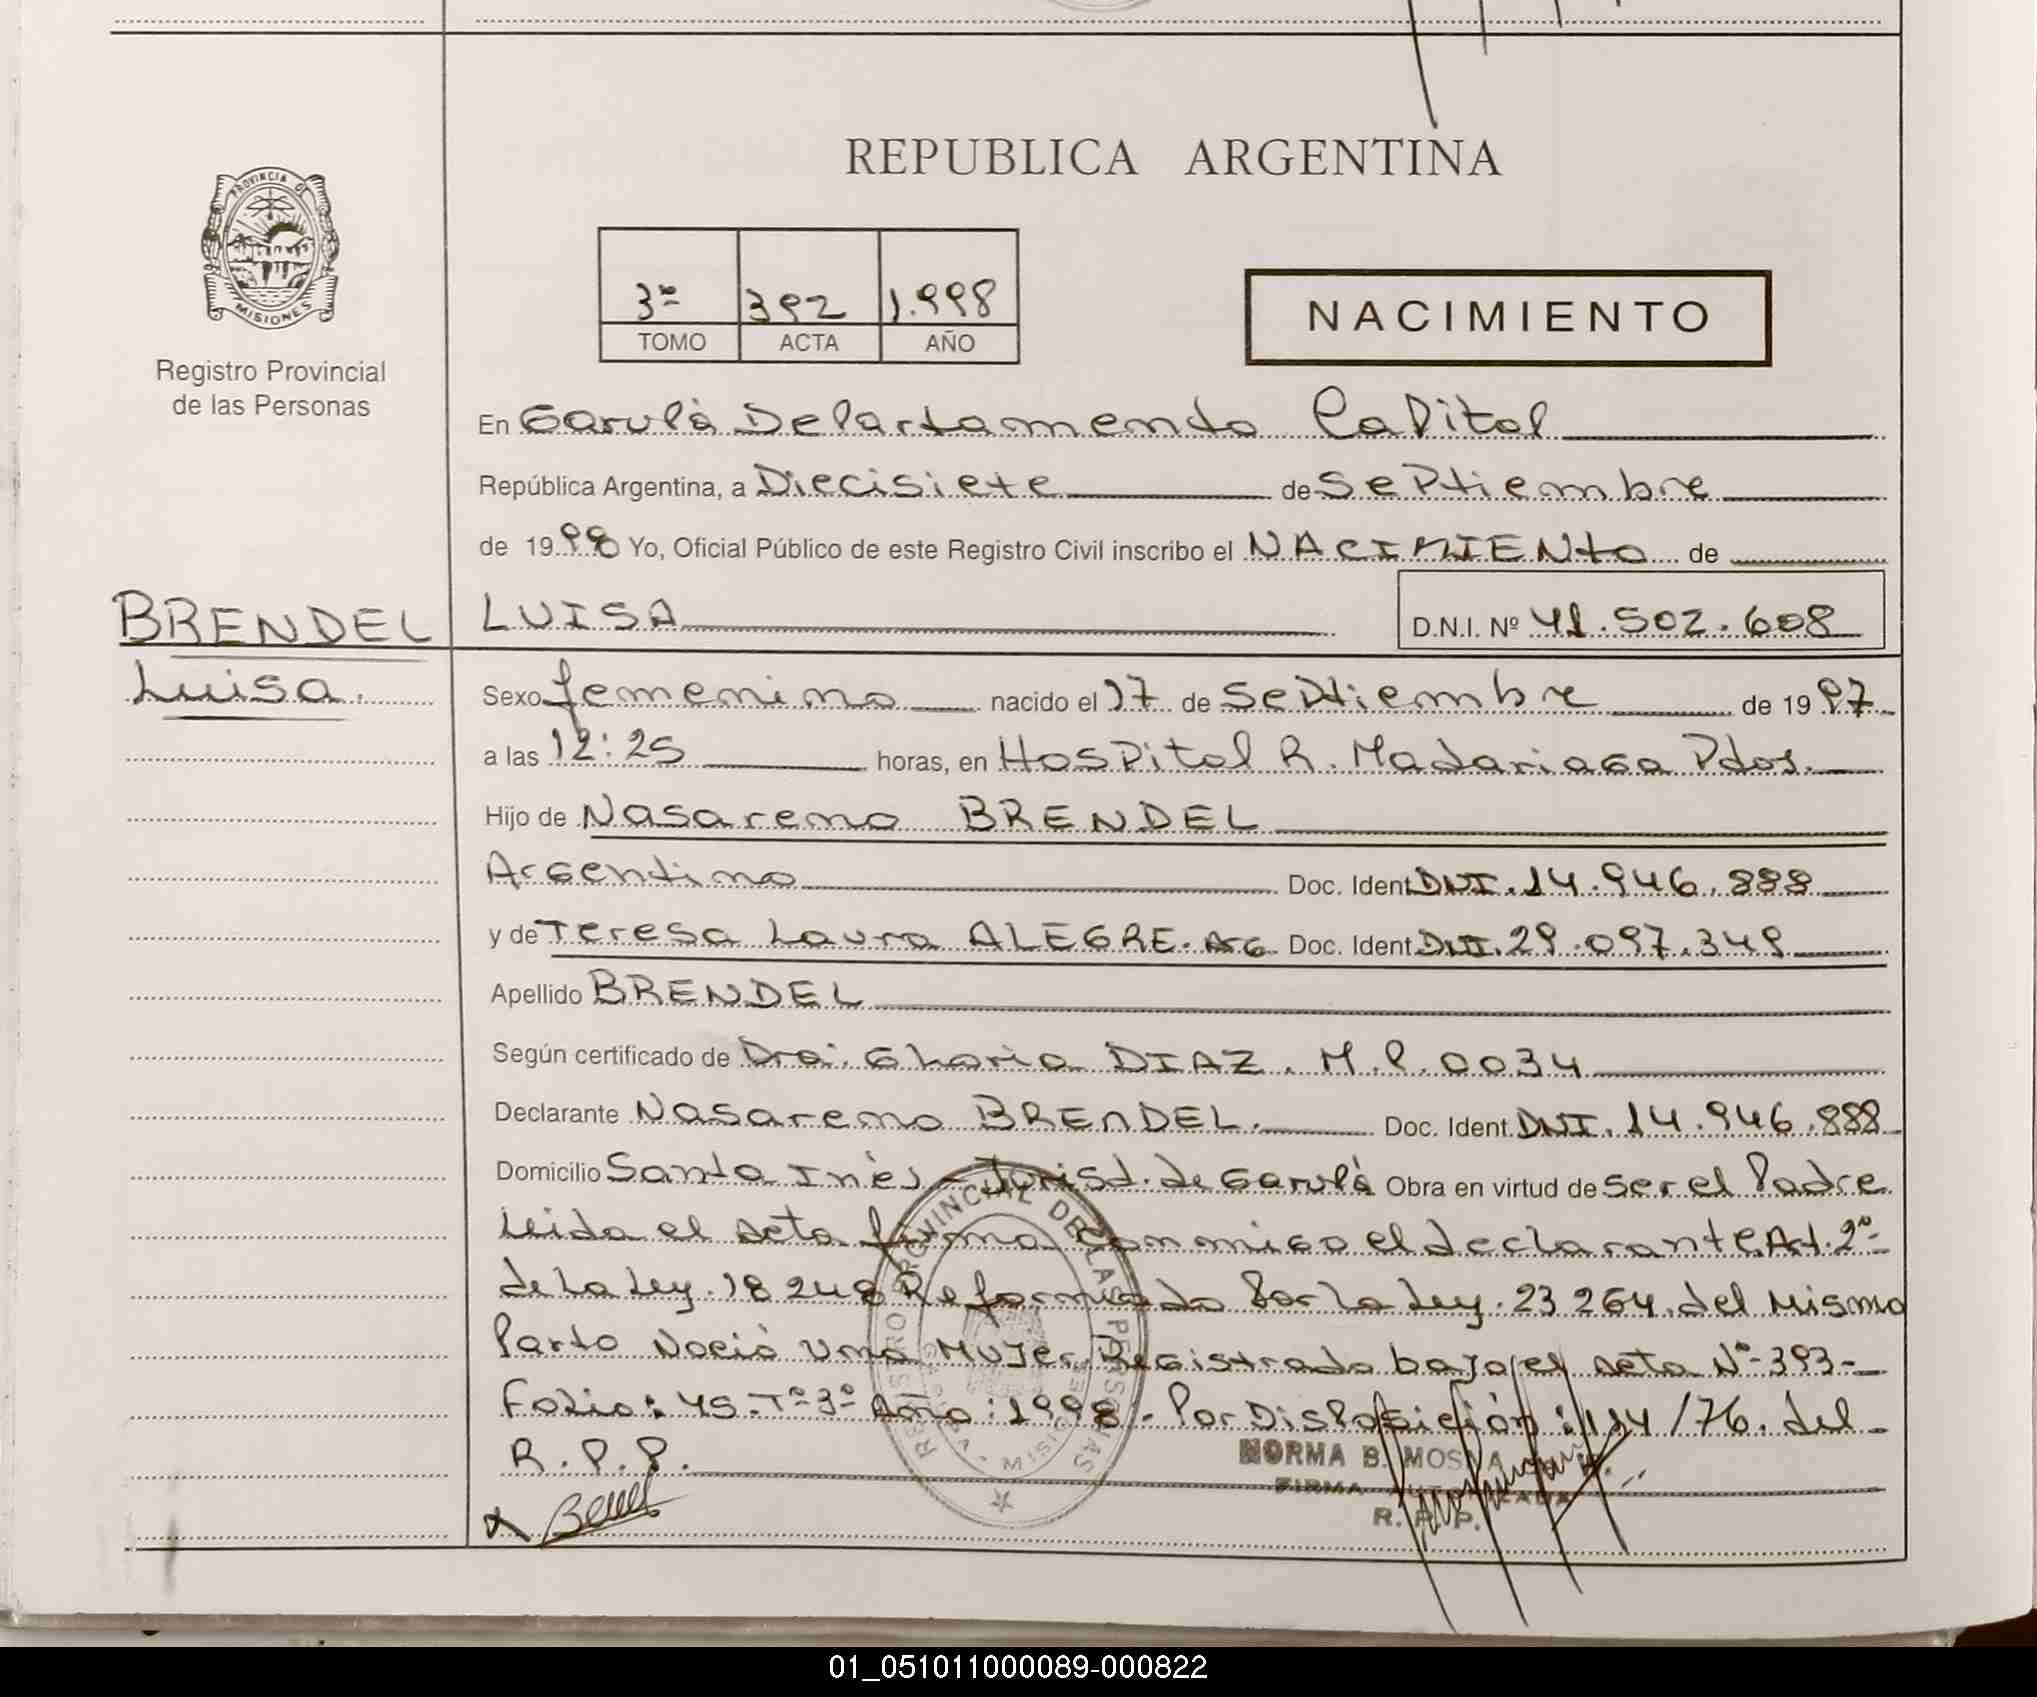 REPUBLICA ARGENTINA
PROVINCIA DE
MISIONES
Registro Provincial
de las Personas
3º 392 1.998
TOMO ACTA AÑO
NACIMIENTO
En Garupá Departamento Capital
República Argentina, a Diecisiete de Septiembre
de 1998 Yo, Oficial Público de este Registro Civil inscribo el NACIMIENto de
BRENDEL LUISA D.N.I. Nº 41.502.608
Luisa. Sexo femenino nacido el 17 de Septiembre de 1997
a las 12:25 horas, en Hospital R. Madariaga Pdas.
Hijo de Nasareno BRENDEL
Argentino Doc. Ident DNI. 14.946.888
y de Teresa Laura ALEGRE. Arg Doc. Ident DNI. 29.097.349
Apellido BRENDEL
Según certificado de Dra. Gloria DIAZ. M.P. 0034
Declarante Nasareno BRENDEL. Doc. Ident DNI. 14.946.888
Domicilio Santa Inés - Jurisd. de Garupá Obra en virtud de ser el Padre
Leida el acta firma conmigo el declarante. Art. 2º-
de La Ley. 18248 Reformado Por la Ley. 23264. del Mismo
Parto Nació una Mujer Registrada bajo el acta Nº-393-
Folio: 45-Tº-3º- Año: 1998.- Por Disposición: 114/76. del
R.P.P.
REGISTRO PROVINCIAL DE LAS PERSONAS
NORMA B. MOS
FIRMA AUTORIZADA
R. P. P.
01_051011000089-000822